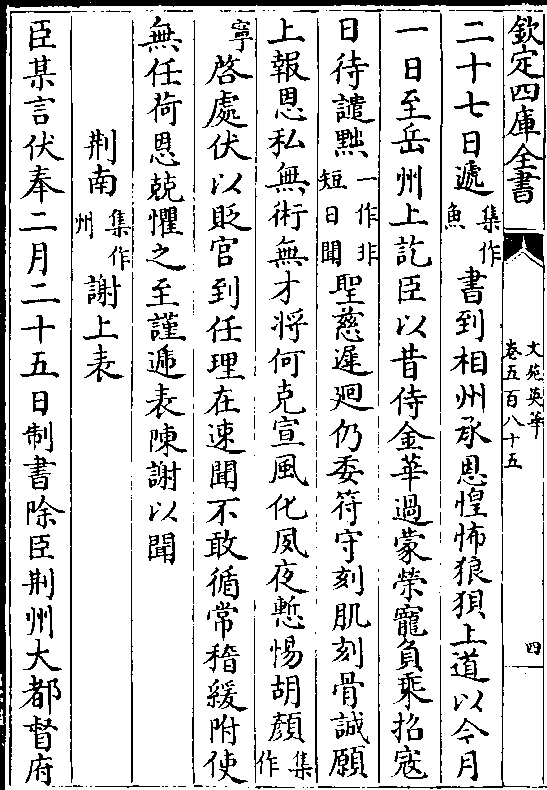 欽定四庫全書
文苑英華
卷五百八十五
四
二十七日遞集作魚書到相州承恩惶怖狼狽上道以今月
一日至岳州上訖臣以昔侍金華過蒙榮寵負乘招寇
日待譴黜一作非短日聞聖慈遲廻仍委符守刻肌刻骨誠願
上報恩私無術無才將何克宣風化夙夜慙惕胡顔集作
寧啓處伏以貶官到任理在速聞不敢循常稽緩附使
無任荷恩兢懼之至謹遞表陳謝以聞
荆南集作州謝上表
臣某言伏奉二月二十五日制書除臣荆州大都督府